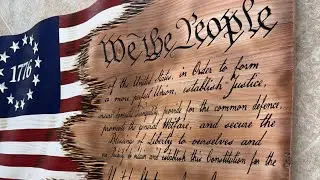 1776
We the People
of the United States, in Order to form
a more perfect Union, establish Justice,
insure domestic tranquility, provide for the common defence,
promote the general Welfare, and secure the
Blessings of Liberty to ourselves and
our Posterity, do ordain and establish this Constitution for the
United States